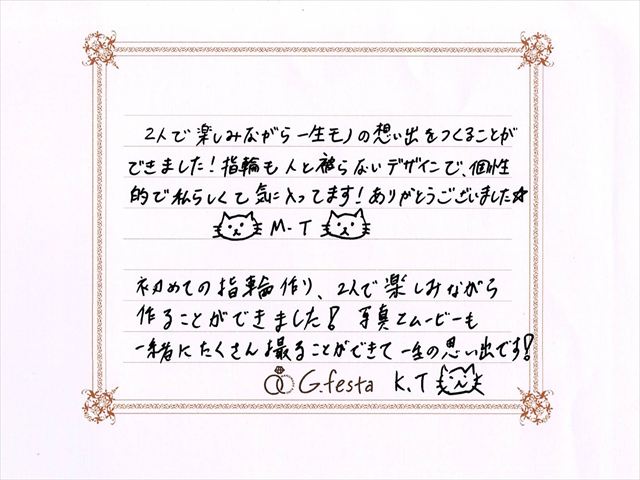 2人で楽しみながら一生モノの想い出をつくることが
できました!指輪も人と被らないデザインで、個性
的で私らしくて気に入ってます!ありがとうございました☆
M.T
初めての指輪作り、2人で楽しみながら
作ることができました!写真とムービーも
一緒にたくさん撮ることができて一生の思い出です!
G.festa K.T